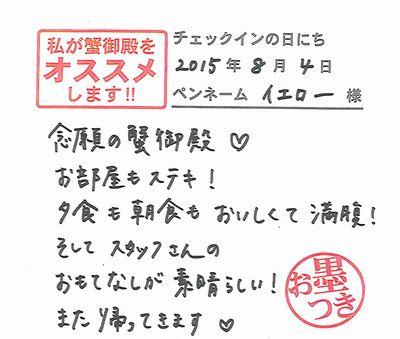 私が蟹御殿を
オススメ
します!!
チェックインの日にち
2015年8月4日
ペンネーム イエロー 様
念願の蟹御殿♡
お部屋もステキ!
夕食も朝食もおいしくて満腹!
そして スタッフさんの
おもてなしが素晴らしい!
また帰ってきます♡
お墨つき